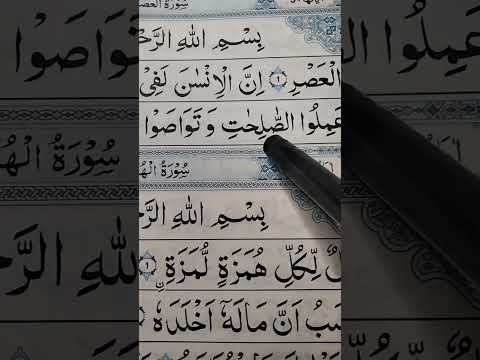 سُوْرَةُ الْعَصْرِ
بِسْمِ اللهِ الرَّحْ
الْعَصْرِ ۝۱ اِنَّ الْاِنْسٰنَ لَفِیْ
عَمِلُوا الصّٰلِحٰتِ وَ تَوَاصَوْا
سُوْرَةُ الْهُ
بِسْمِ اللهِ الرَّحْ
لٌ لِّكُلِّ هُمَزَةٍ لُّمَزَةِ ۝۱
سَبُ اَنَّ مَالَهٗۤ اَخْلَدَهٗ